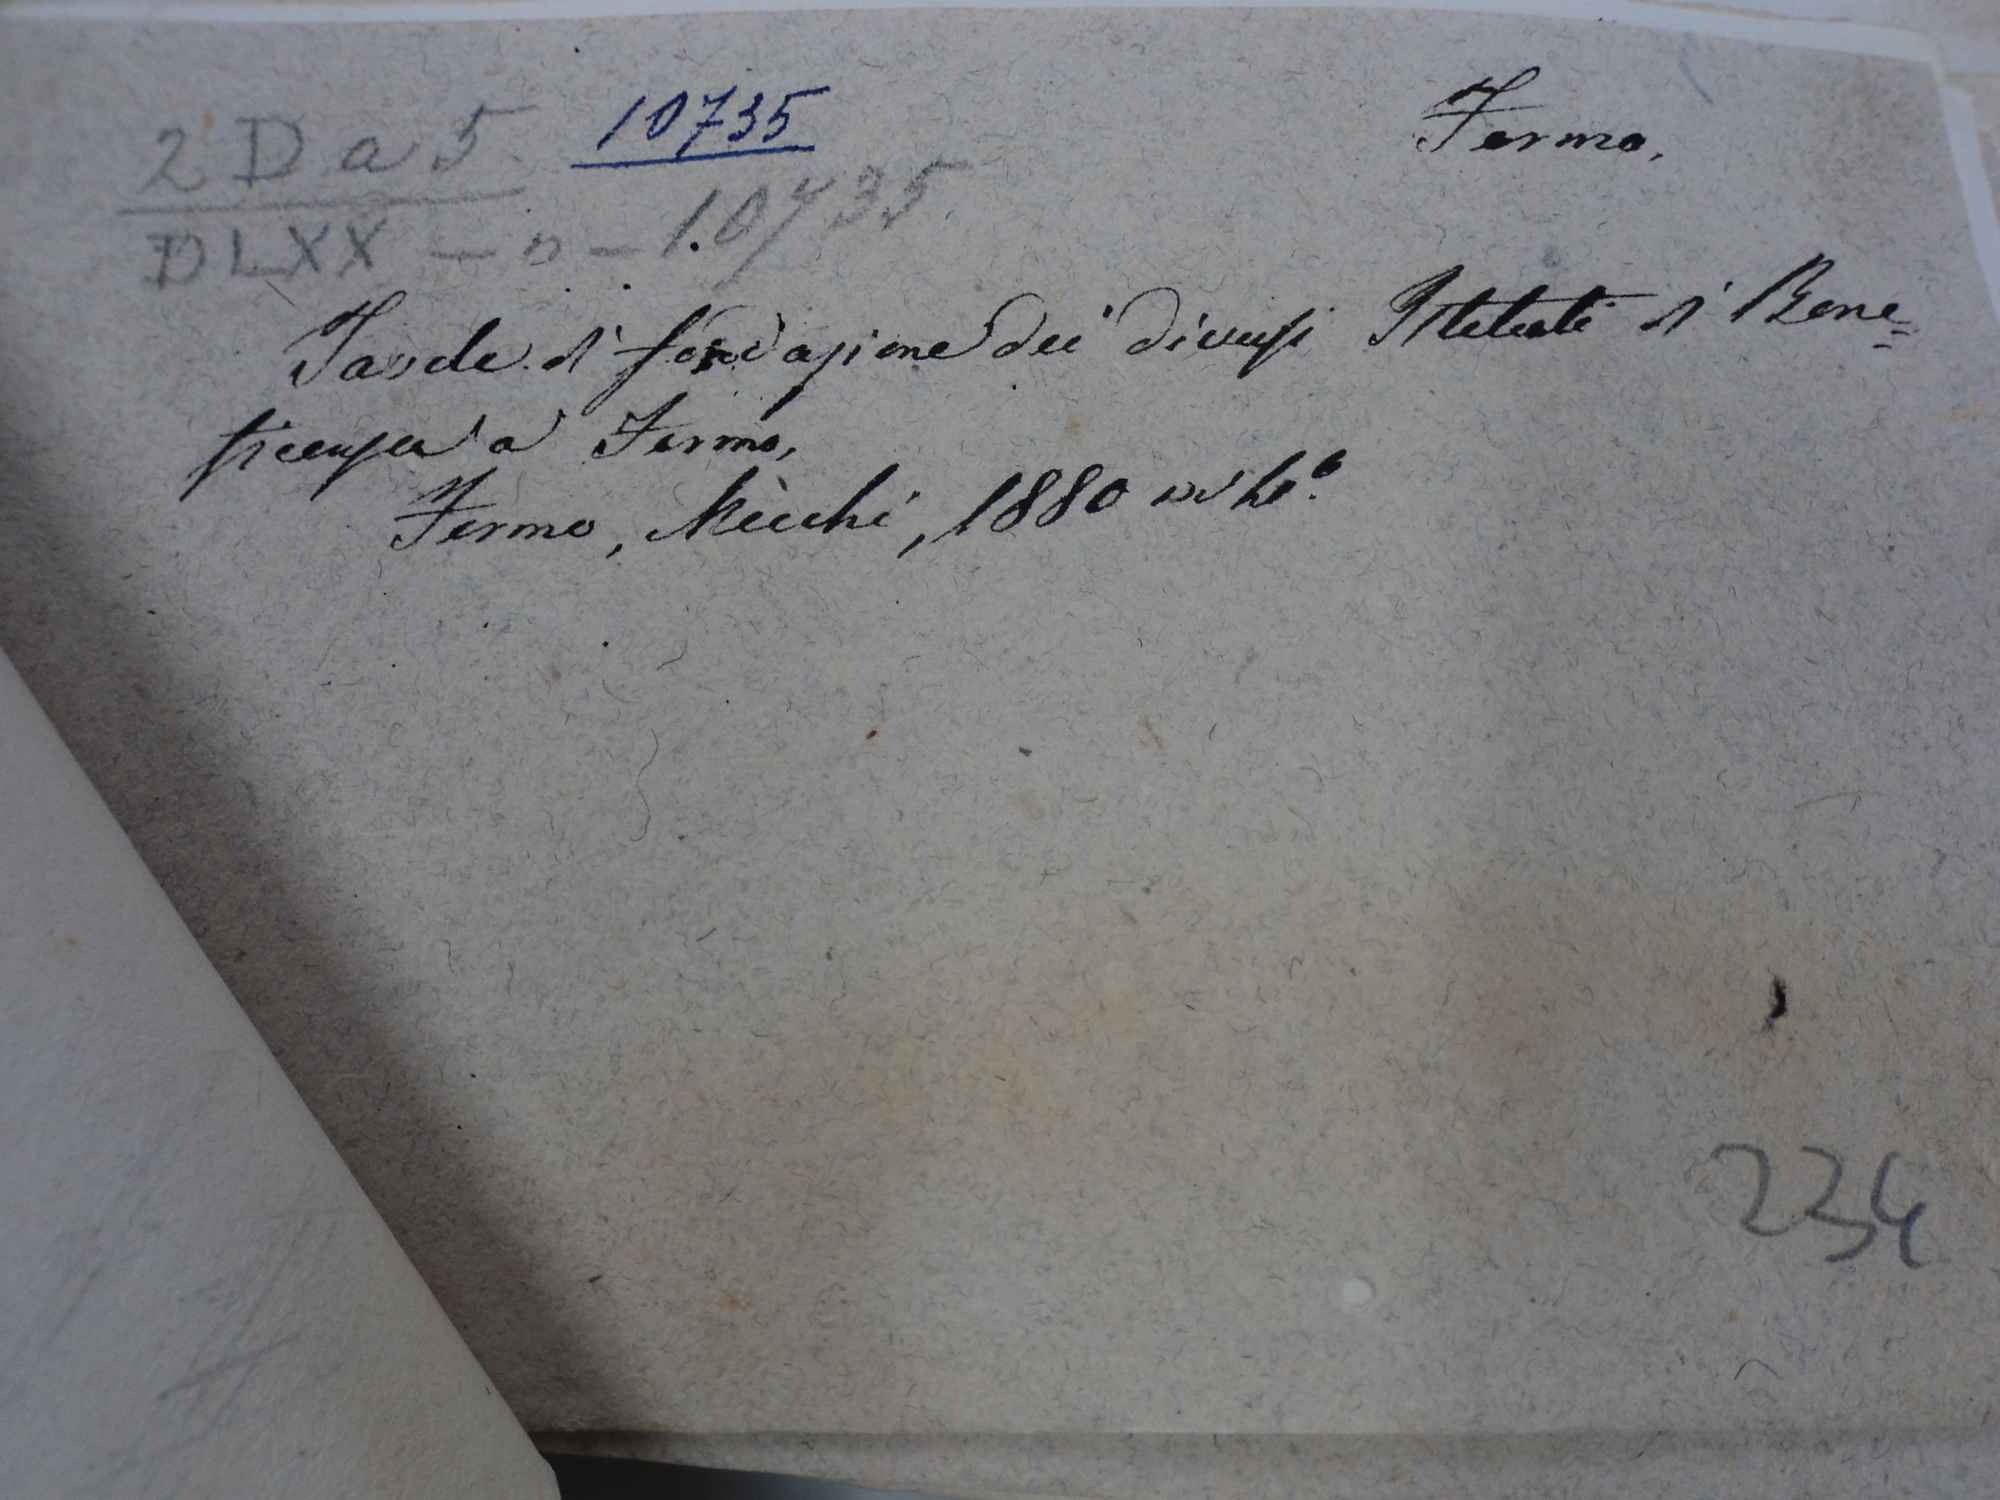 2 D a 5 10735
Fermo.
DLXX - n - 10735
Tavole di fondazione dei diversi Istituti di Bene=
ficenza a Fermo,
Fermo, Mecchi, 1880 in
234